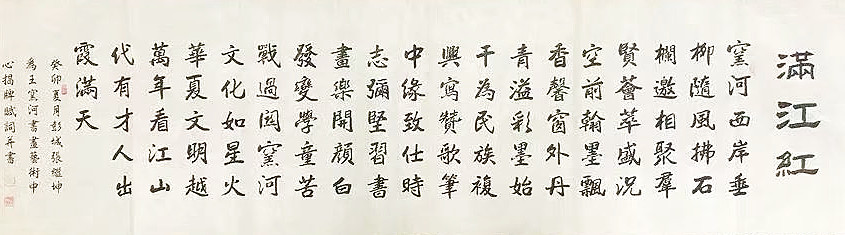 滿江紅
窯河西岸垂
柳隨風拂石
欄邀相聚羣
賢薈萃盛況
空前翰墨飄
香馨窗外丹
青溢彩墨始
干為民族複
興寫贊歌筆
中緣致仕時
志彌堅習書
畫樂開顏白
發變學童苦
戰過窯河
文化如星火
華夏文明越
萬年看江山
代有才人出
霞滿天
癸卯夏月彭城張繼坤
為王窯河書畫藝術中
心揭牌賦詞并書